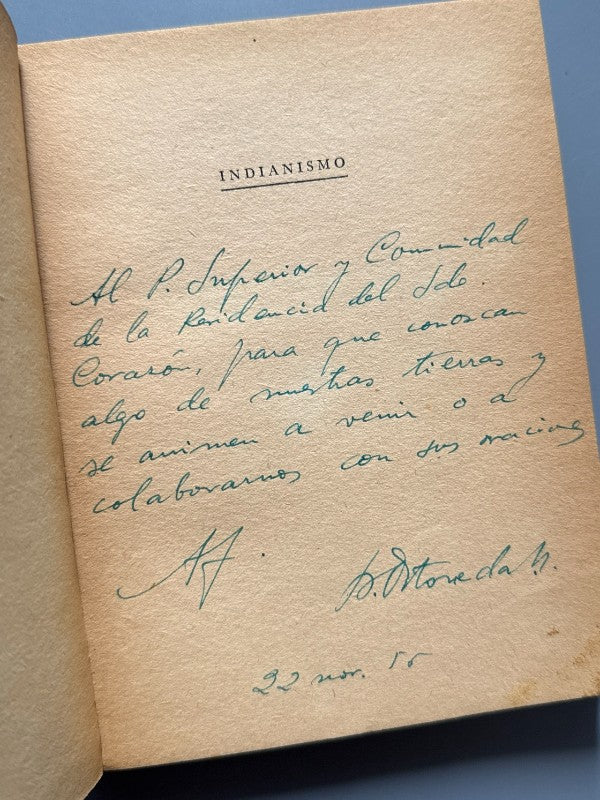 INDIANISMO
Al P. Superior y Comunidad
de la Residencia del Sdo.
Corazón, para que conoscan
algo de nuestras tierras y
se animen a venir o a
colaborarnos con sus oraciones
22 nov.